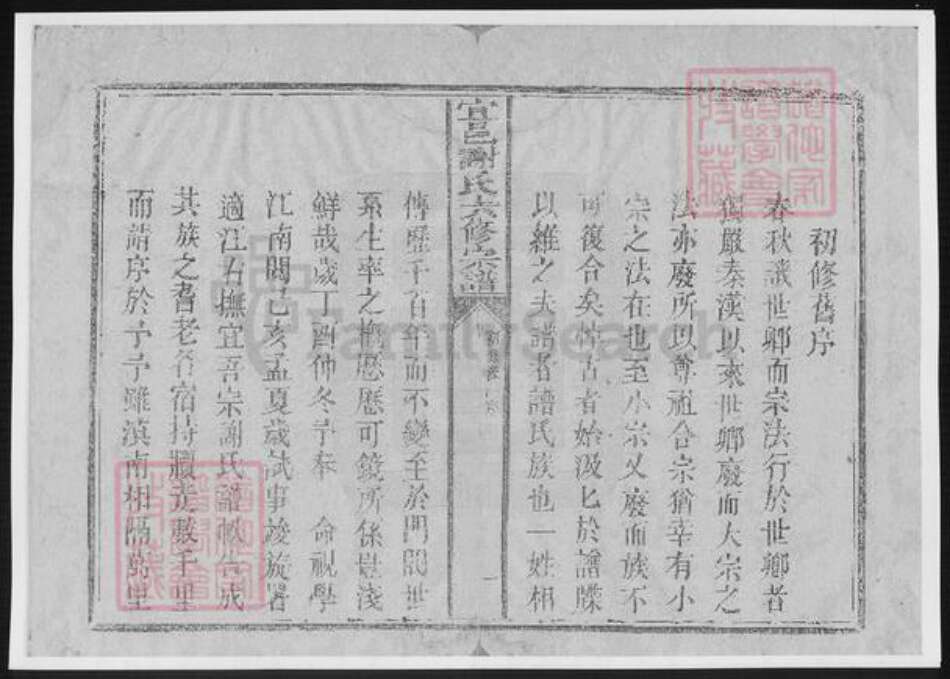 初修舊序
春秋譏世卿而宗法行於世卿者
獨嚴秦漢以來世卿廢而大宗之
法亦廢所以尊祖合宗猶幸有小
宗之法在也至小宗又廢而族不
可復合矣 古者始汲匕於譜牒
以維之夫譜者譜氏族也一姓相
宜邑謝氏六修宗譜
一
傳歷千百年而不變至於門閥世
系生率之 歷歷可鏡所係豈淺
鮮哉歲丁酉仲冬予奉 命視學
江南閱己亥孟夏歲試事竣旋署
適江右撫宜吾宗謝氏譜 告成
其族之耆老名宿持 走數千里
而請序於予予雖滇南相隔萬里
FamilySearch